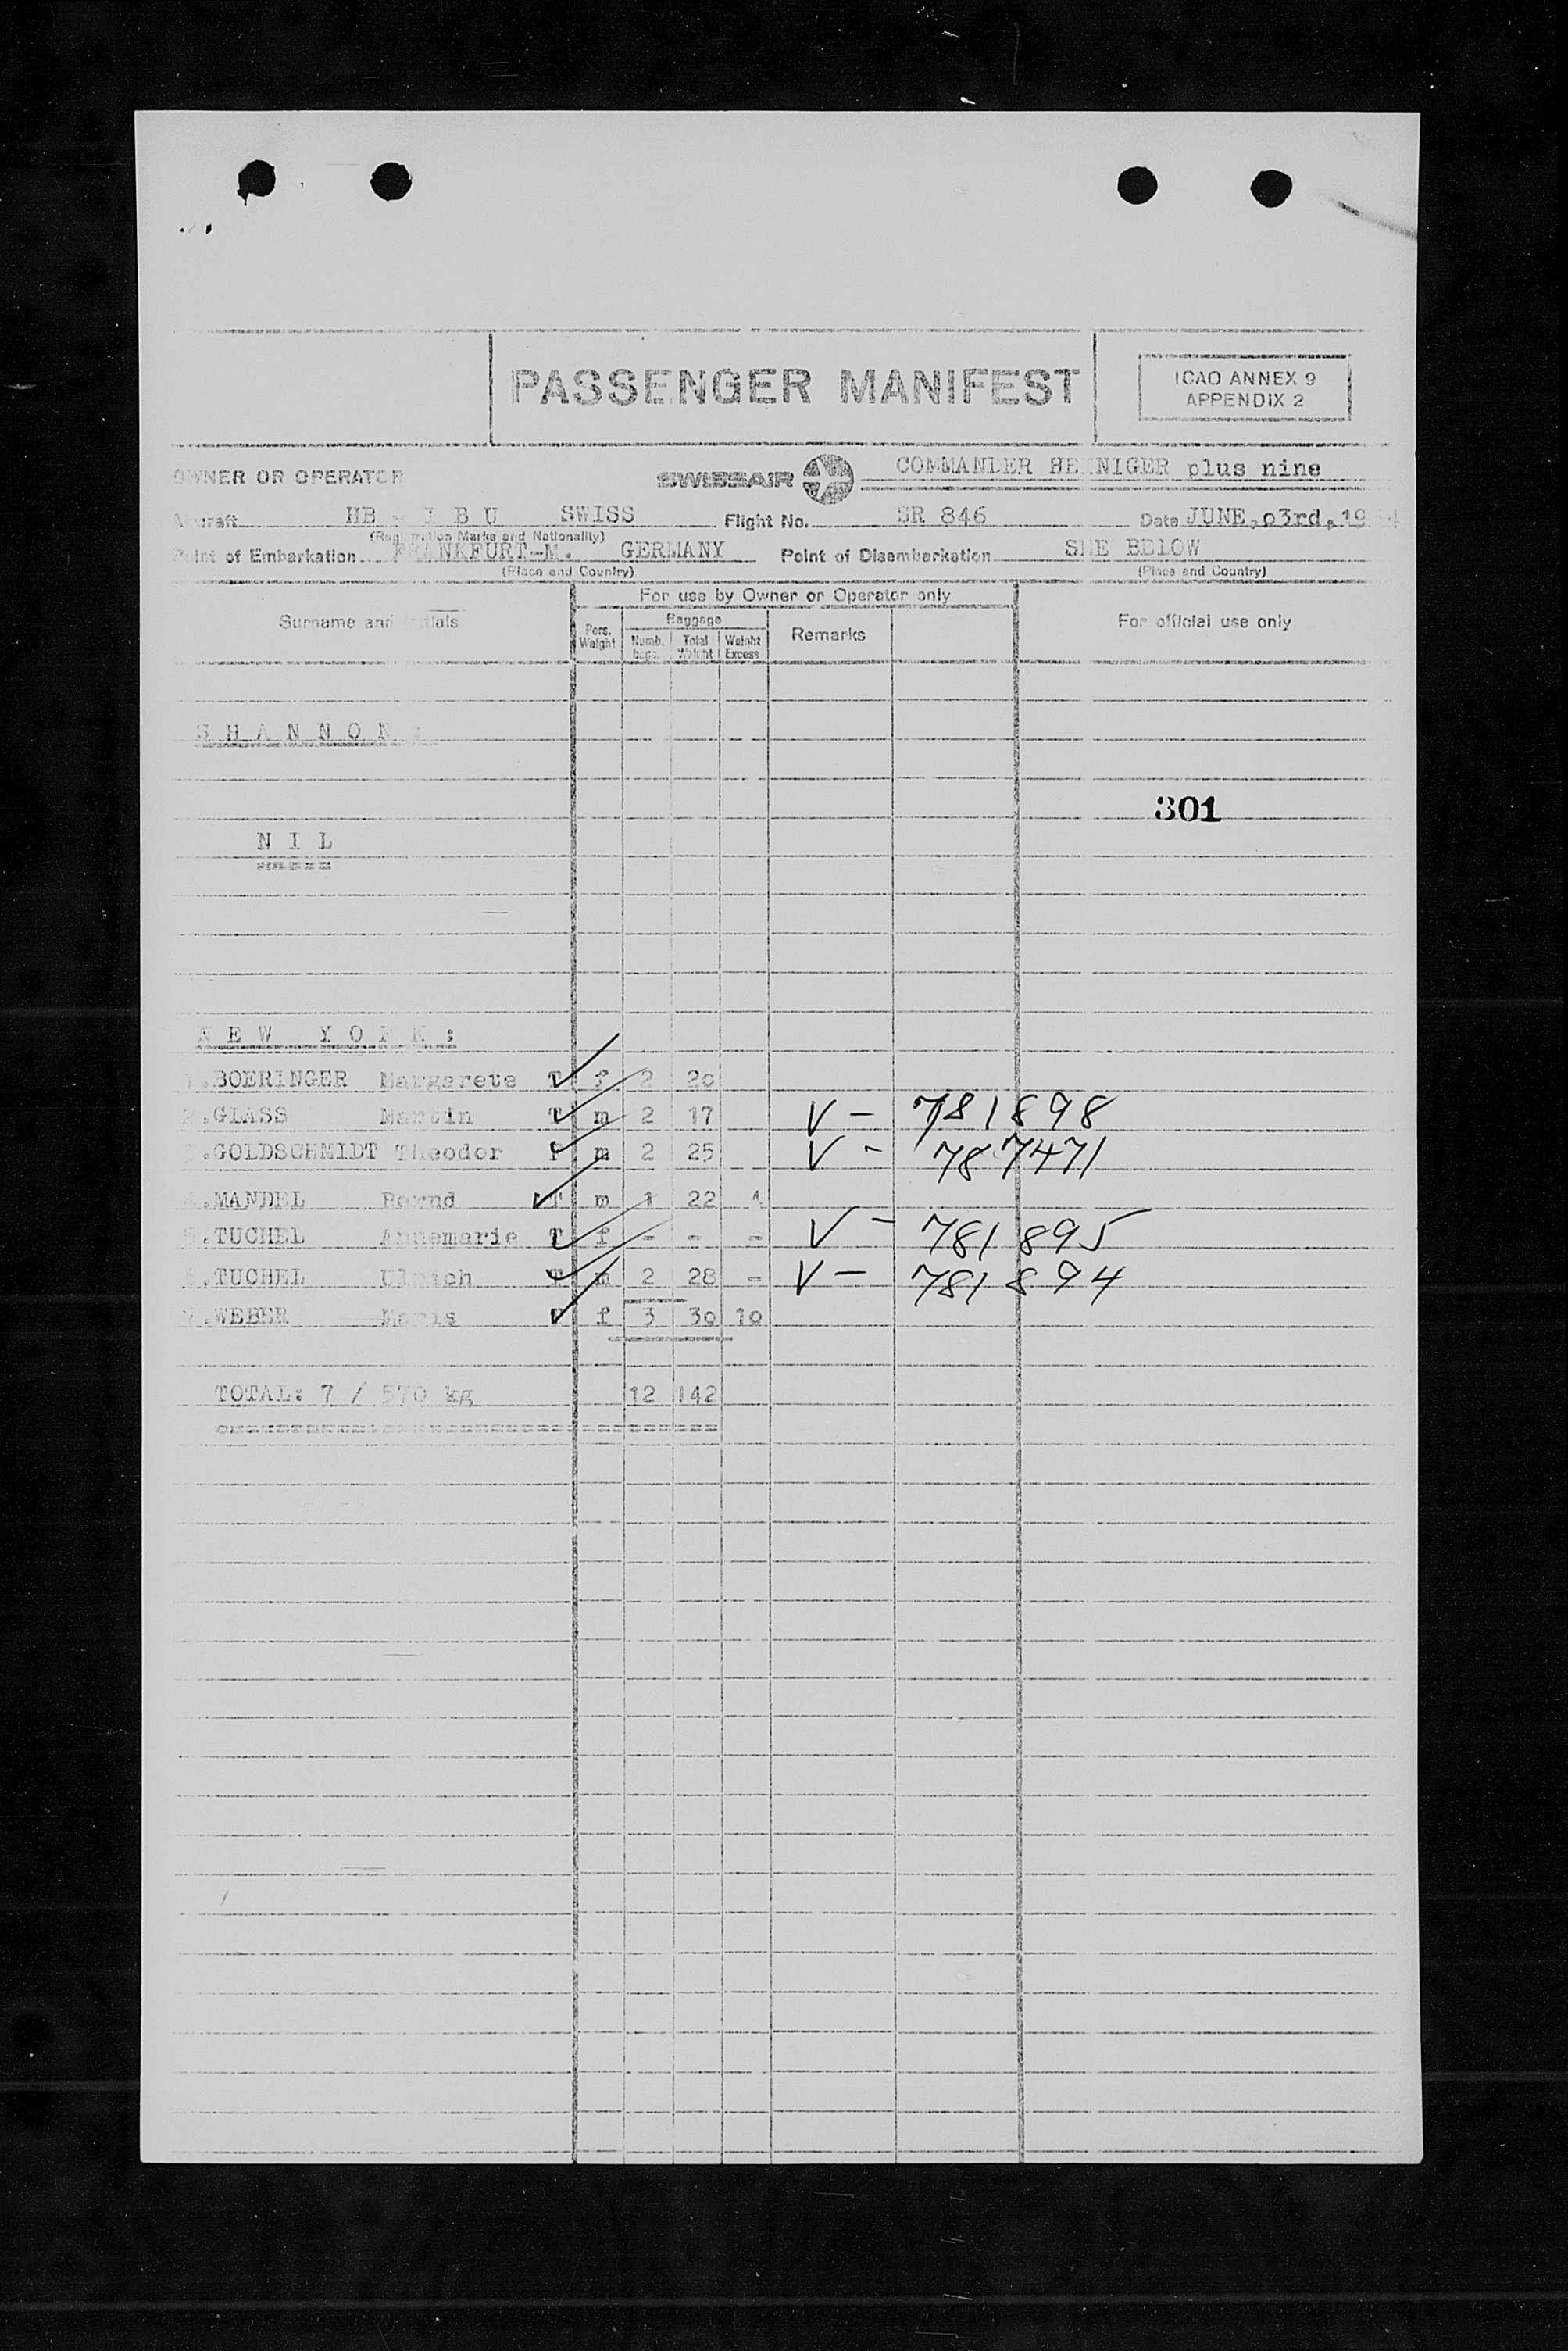 PASSENGER MANIFEST
ICAO ANNEX 9
APPENDIX 2
OWNER OR OPERATOR SWISSAIR COMMANDER HENNIGER plus nine
Aircraft HB - I B U SWISS Flight No. SR 846 Date JUNE, o3rd, 19
(Registration Marks and Nationality)
Point of Embarkation FRANKFURT-M. GERMANY Point of Disembarkation SEE BELOW
(Place and Country) (Place and Country)
For use by Owner or Operator only
Surname and initials Pers. Weight Baggage Numb. bags. Total Weight Weight Excess Remarks For official use only
S H A N N O N :
301
N I L
N E W Y O R K :
1.BOERINGER Margarete T f 2 2o
2.GLASS Martin T m 2 17 V - 781898
3.GOLDSCHMIDT Theodor m 2 25 V - 787471
4.MANDEL Bernd T m 1 22
5.TUCHEL Annemarie T f - - - V - 781895
6.TUCHEL Ulrich T m 2 28 - V - 781894
7.WEBER f 3 3o 1o
TOTAL: 7 / 570 kg 12 142